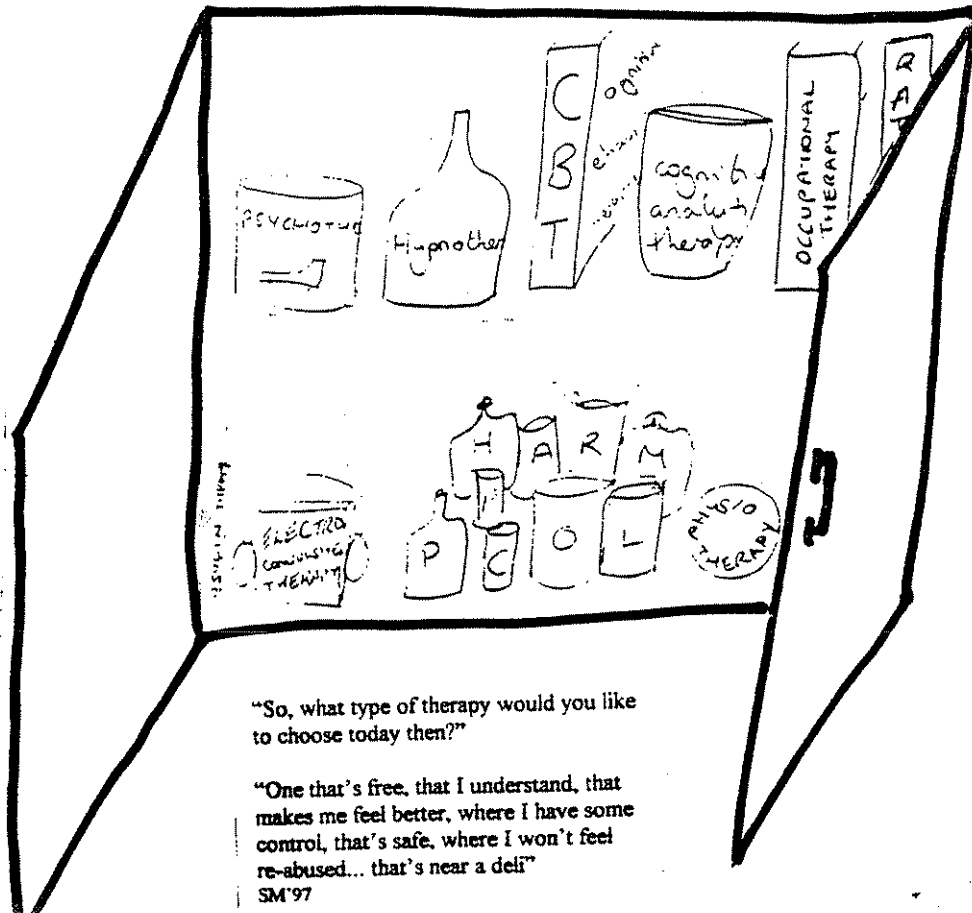 PSYCHOTHE
Hypnother
C ognitive
B ehaviour
T
cognitiv
analyti
therapy
OCCUPATIONAL
THERAPY
R
A
ELECTRO
CONVULSIVE
THERAPY
H A R M
P I C O L
PHYSIO
THERAPY
“So, what type of therapy would you like
to choose today then?”
“One that’s free, that I understand, that
makes me feel better, where I have some
control, that’s safe, where I won’t feel
re-abused... that’s near a deli”
SM’97